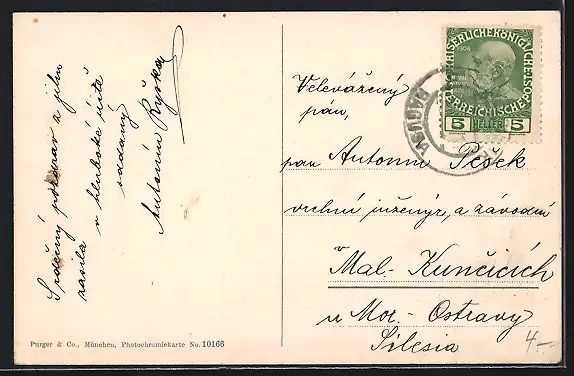 Srdečný pozdrav z jihu
zasílá v hluboké úctě
oddaný
Antonín Ryška
Purger & Co., München, Photochromiekarte No. 10166
KAISERLICHE KÖNIGLICHE
ÖSTERREICHISCHE POST
1908
5 HELLER 5
RAGUSA
Velevážený
pán,
pan Antonín Pešek
vrchní inženýr, a závodní
v
Mal. Kunčicích
u Mor. Ostravy
Silesia
4.-